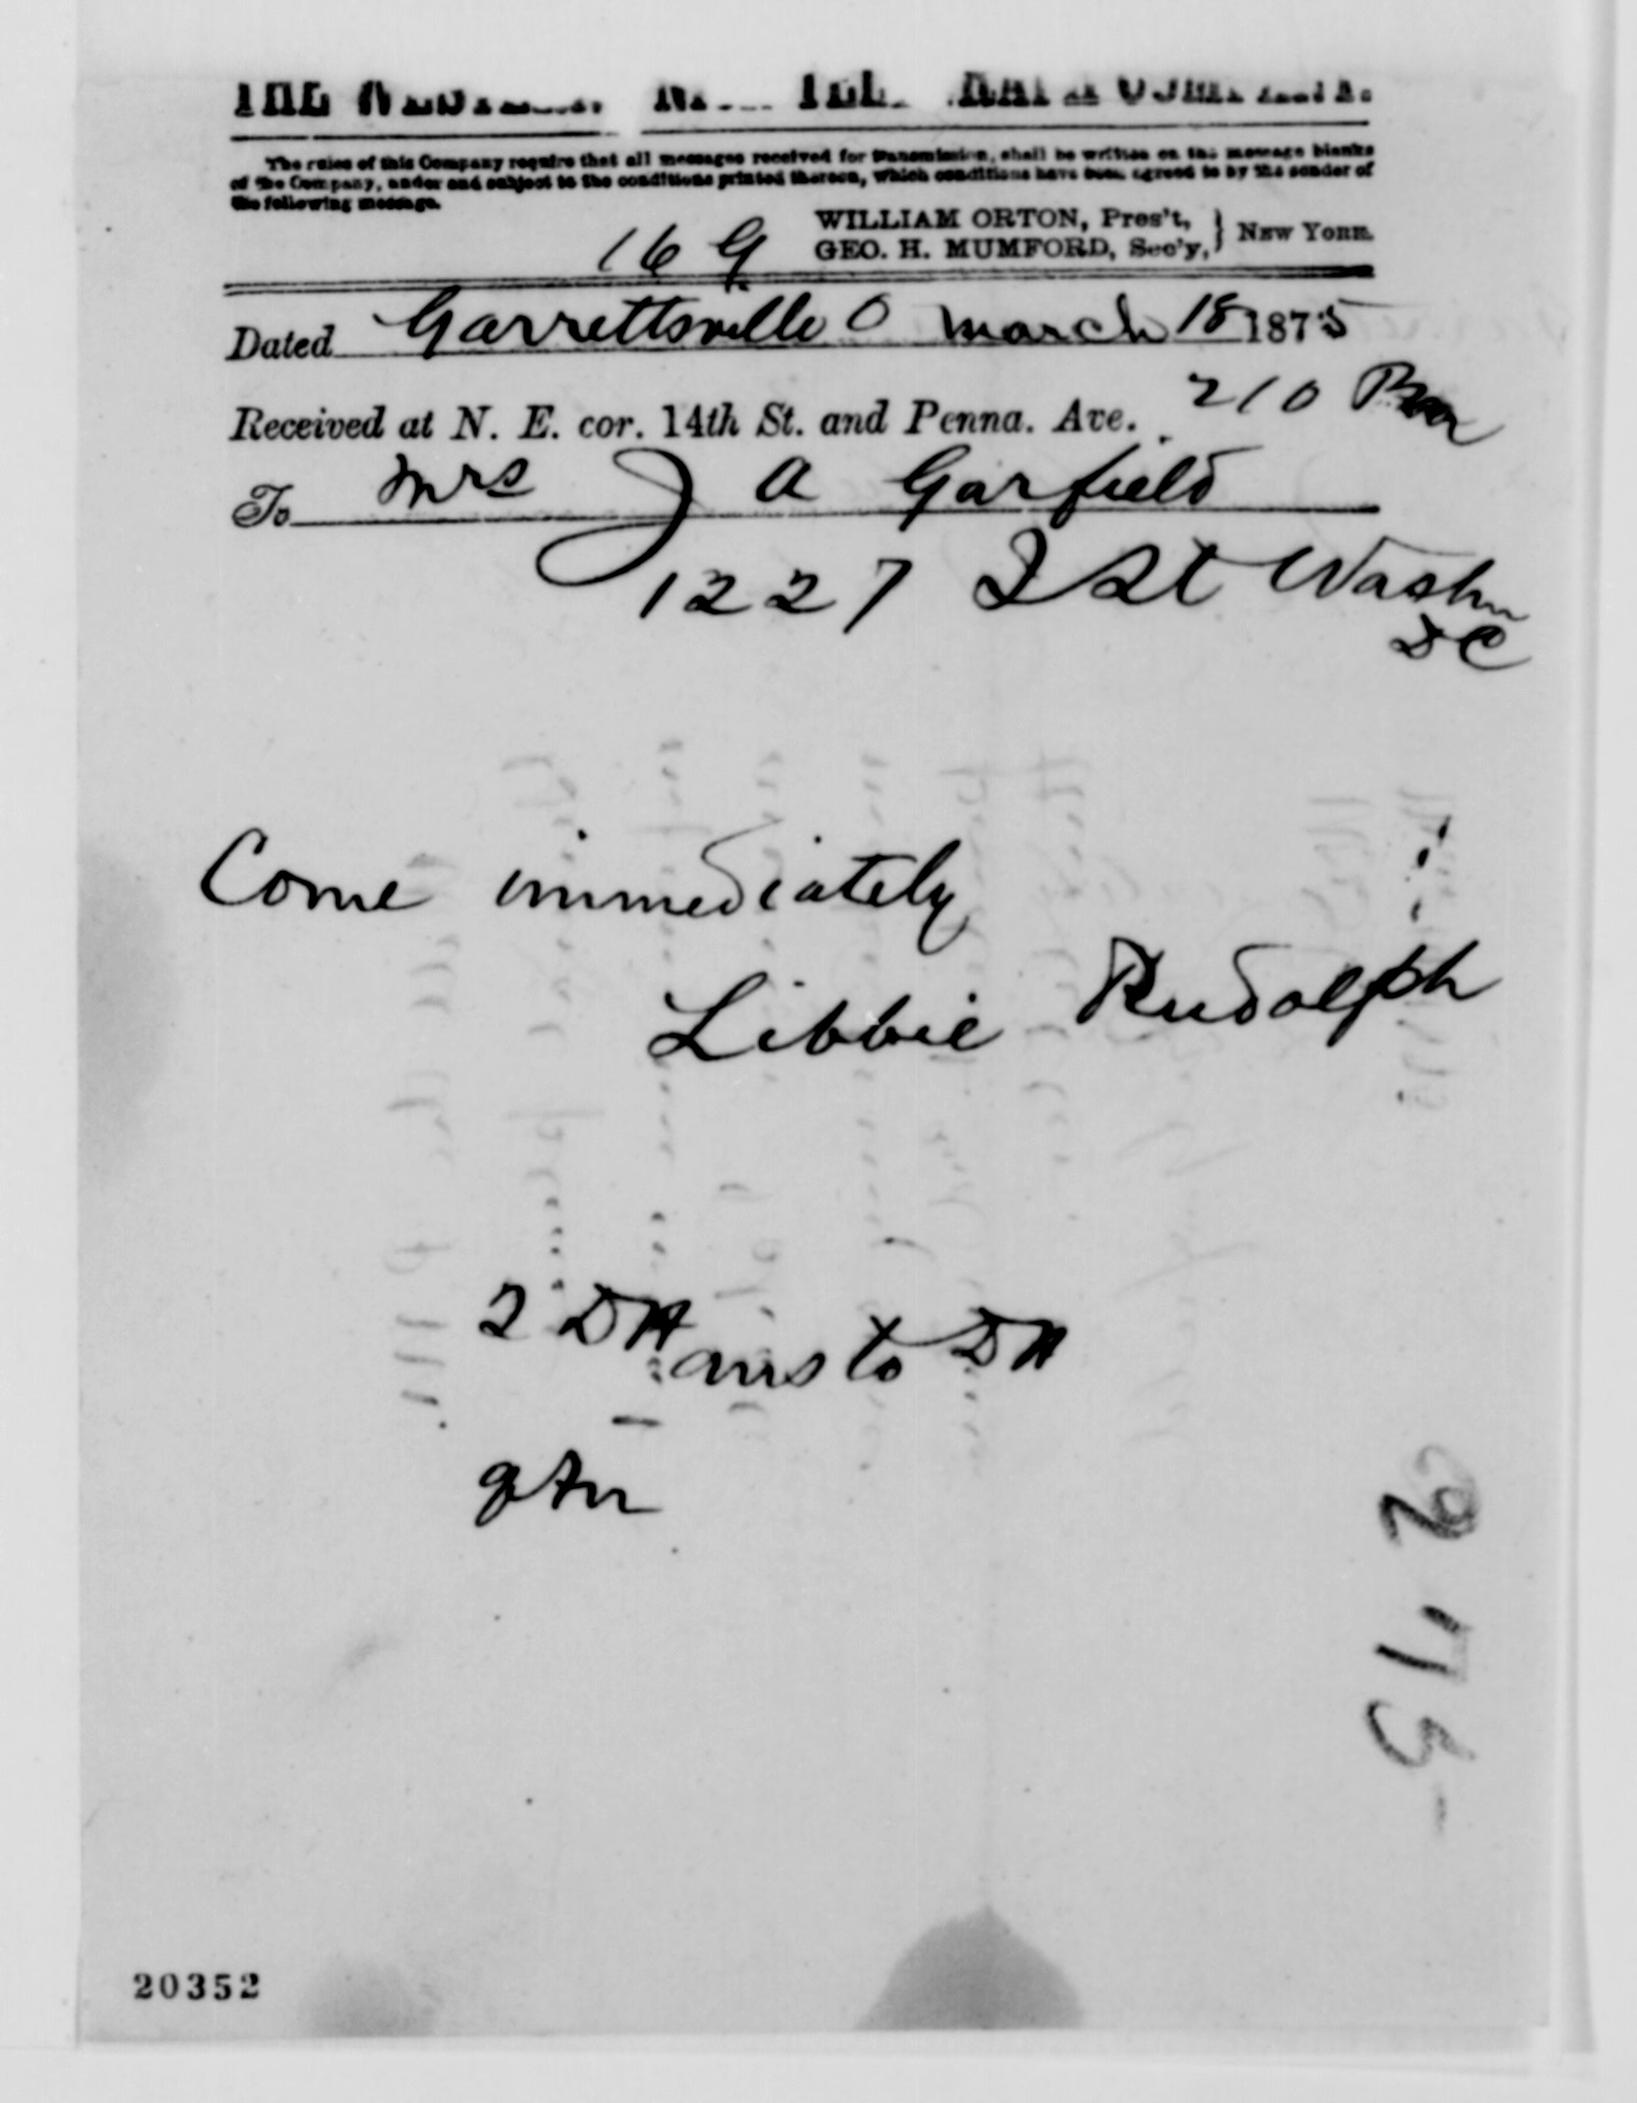 THE WESTERN UNION TELEGRAPH COMPANY.
The rules of this Company require that all messages received for transmission, shall be written on the message blanks
of the Company, under and subject to the conditions printed thereon, which conditions have been agreed to by the sender of
the following message.
16 G
WILLIAM ORTON, Pres't,
GEO. H. MUMFORD, Sec'y,
NEW YORK.
Dated Garrettsville O March 18 1875
Received at N. E. cor. 14th St. and Penna. Ave. 210
To Mrs J A Garfield
1227 I St Washn
DC
Come immediately
Libbie Rudolph
2 DH ans to DH
2175
20352